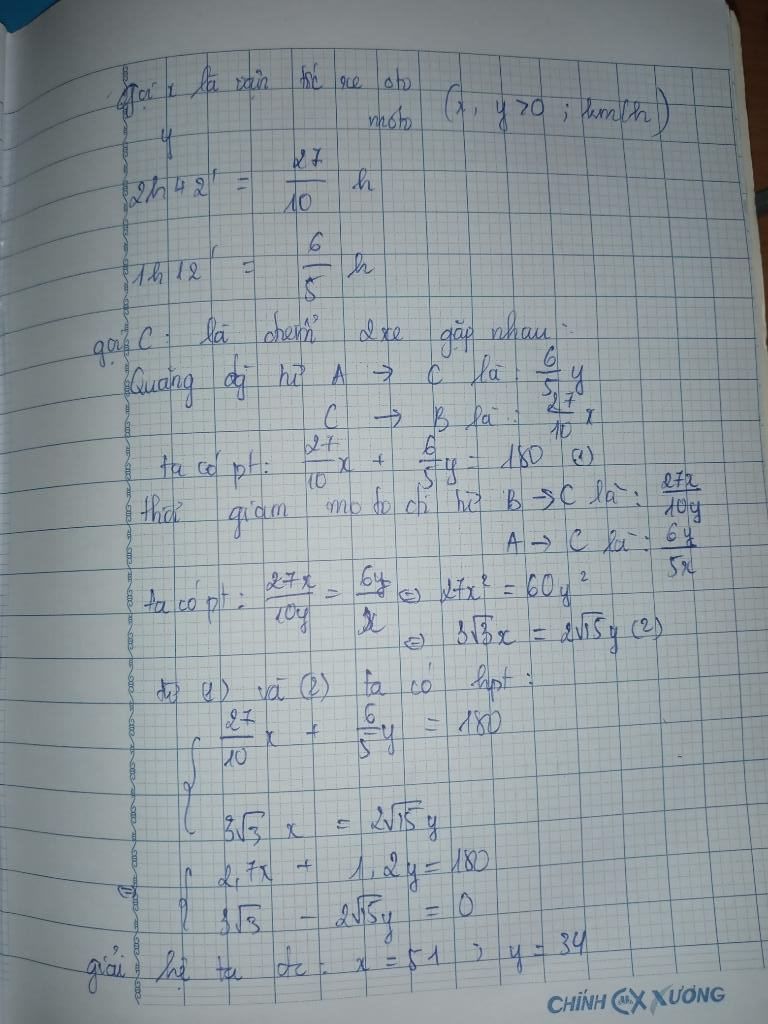 Gọi x là vận tốc xe oto
y moto (x, y > 0 ; km/h)
2h42' = 27/10 h
1h12' = 6/5 h
gọi C: là điểm 2 xe gặp nhau:
Quãng đg từ A → C là: 6/5 y
C → B là: 27/10 x
ta có pt: 27/10 x + 6/5 y = 180 (1)
thời gian moto đi từ B → C là: 27x/10y
A → C là: 6y/5x
ta có pt: 27x/10y = 6y/x ⇔ 27x² = 60y²
⇔ 3√3x = 2√15y (2)
từ (1) và (2) ta có hpt:
{ 27/10 x + 6/5 y = 180
3√3 x = 2√15 y
⇔ { 2,7x + 1,2y = 180
3√3 - 2√15y = 0
giải hệ ta đc: x = 51 ; y = 34
CHÍNH XƯƠNG